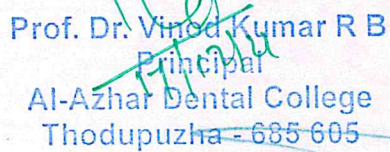 Prof. Dr. Vinod Kumar R B
Principal
17/12/21
Al-Azhar Dental College
Thodupuzha - 685 605